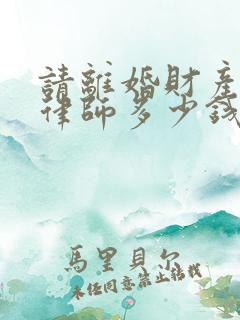 請離婚財產
律師多少錢
馬里貝尔
未任同意禁止轉載